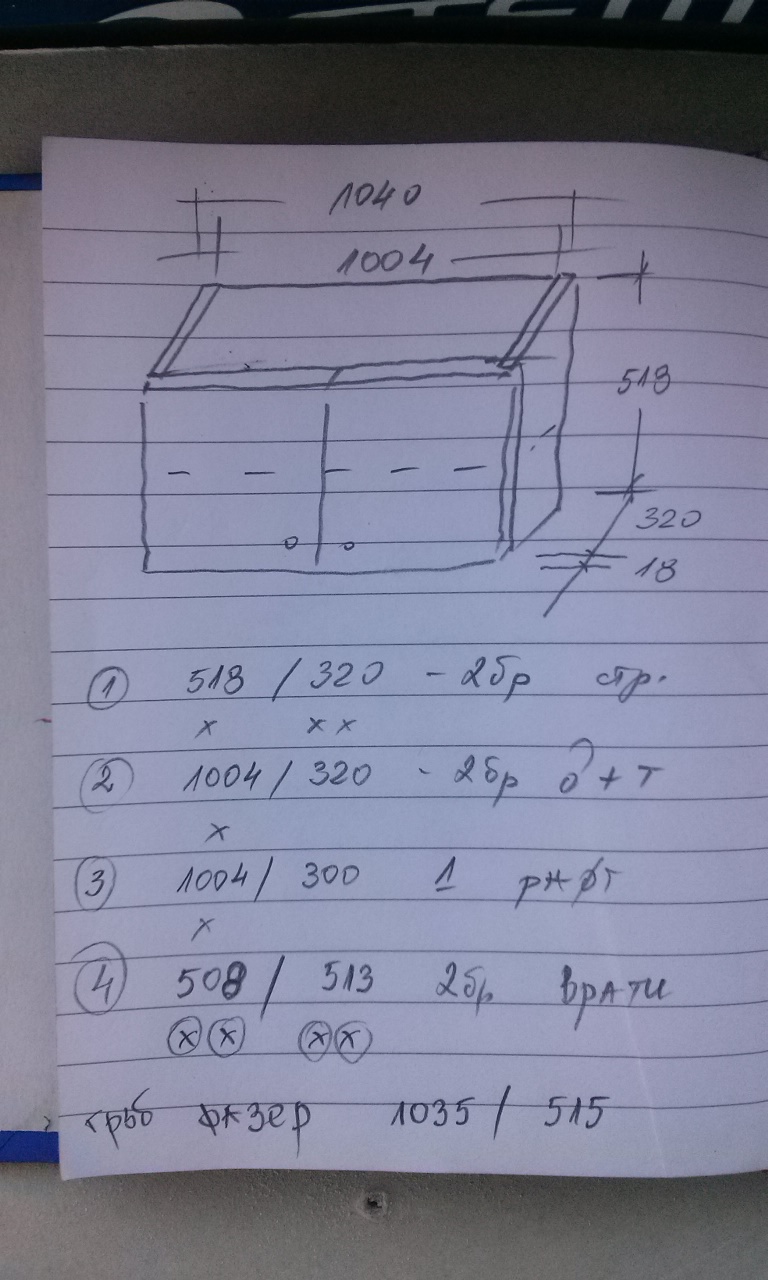 1040
1004
518
320
18
① 518 / 320 - 2бр стр.
x xx
② 1004 / 320 - 2бр д + т
x
③ 1004 / 300 1 рафт
x
④ 508 / 513 2бр врати
ⓧ ⓧ ⓧ ⓧ
гръб фазер 1035 / 515